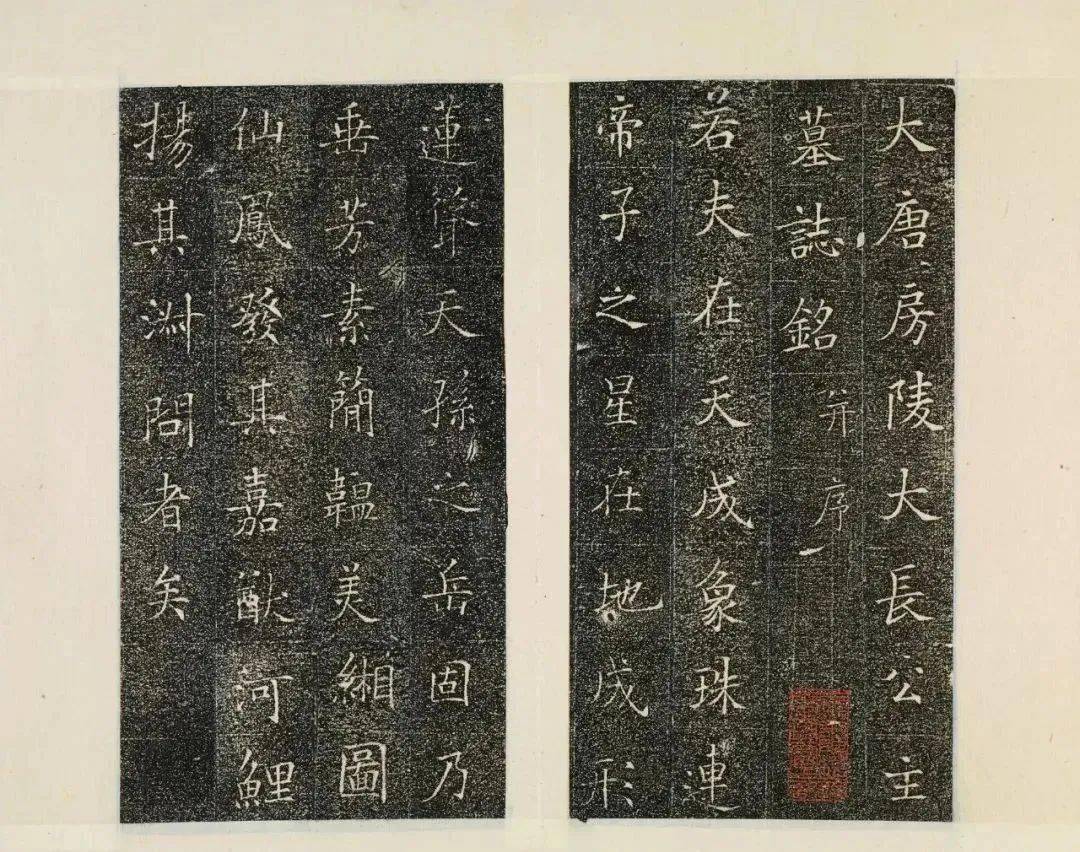 大唐房陵大長公主
墓誌銘并序
若夫在天成象珠連
帝子之星在地成形
蓮聳天孫之岳固乃
垂芳素簡韞美緗圖
仙鳳發其嘉猷河鯉
揚其淑問者矣